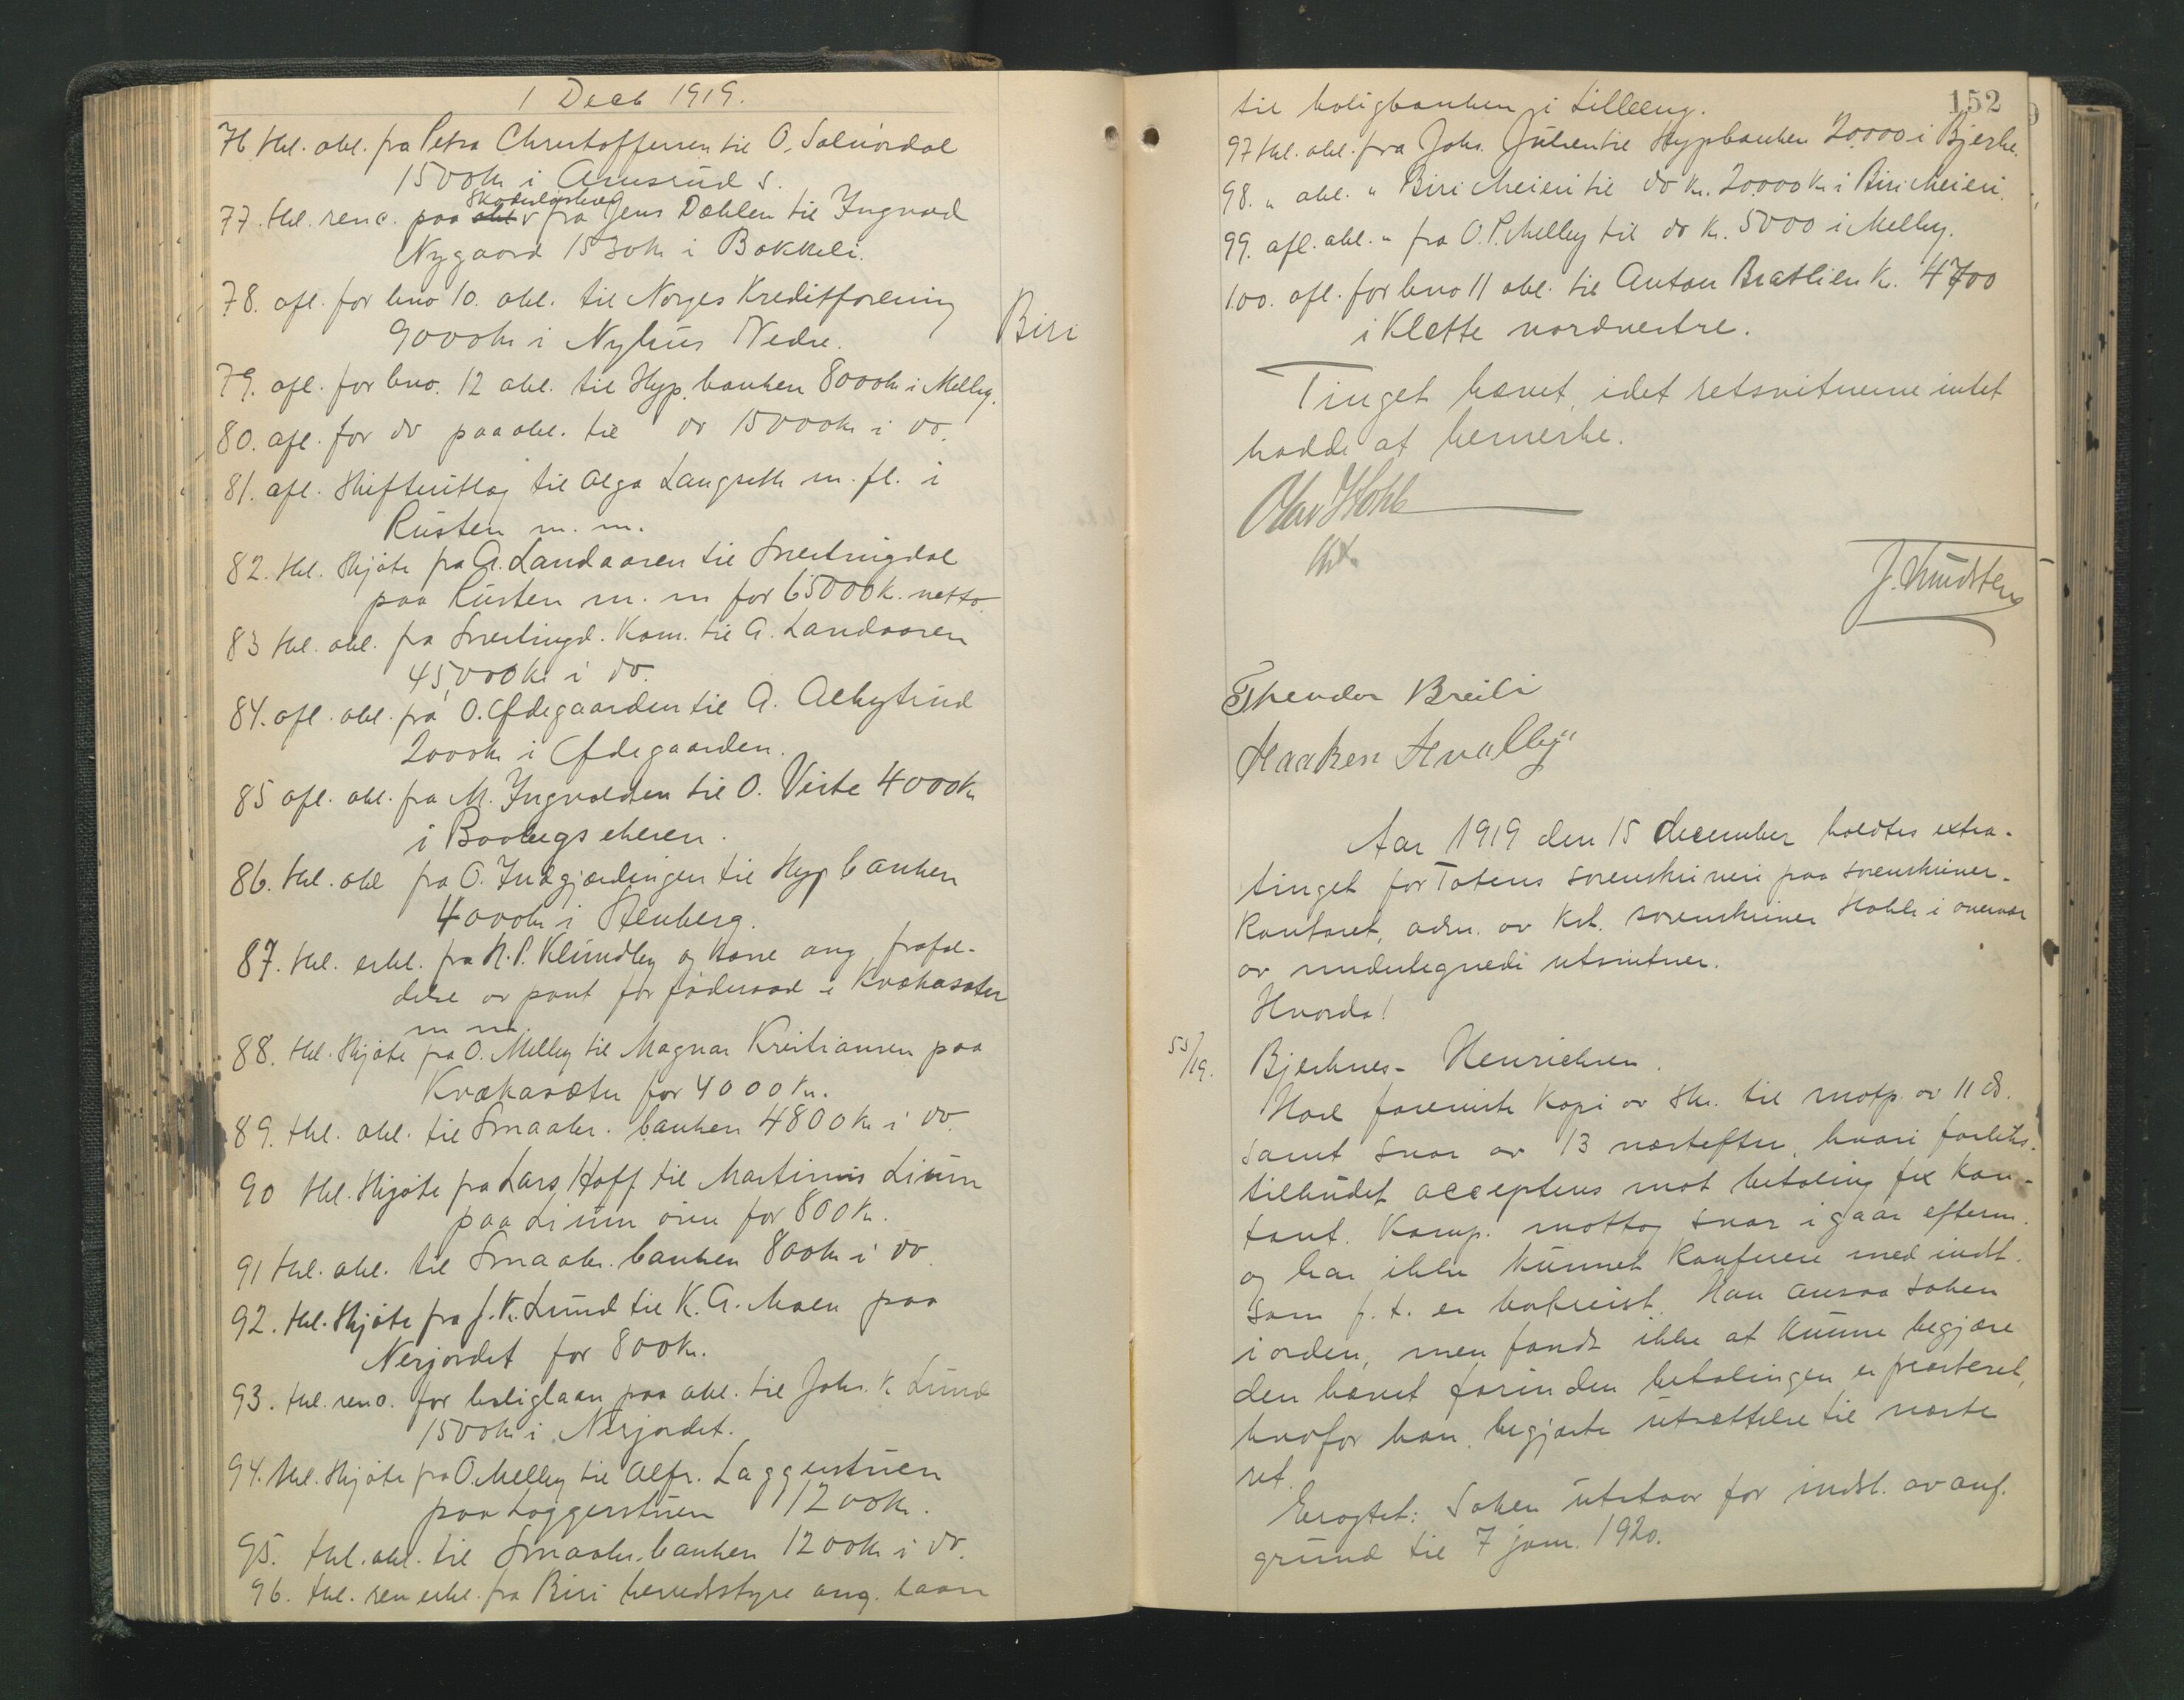 1 Decb 1919.
76 thl. obl. fra Petra Christoffersen til O. Solværdal
1500 kr i Amsrud s.
77. thl. renc. paa skadesløsbrev fra Jens Dæhlen til Ingvad
Nygaard 1530 kr i Bakkeli.
78. afl. for bno 10. obl. til Norges Kreditforening
9000 kr i Nyhus Nedre.
Biri
79. afl. for bno. 12 obl. til Hyp. banken 8000 kr i Melby.
80. afl. for do paaobl. til do 15000 kr i do.
81. afl. skifteutlæg til Olga Langseth m. fl. i
Rusten m. m.
82. thl. skjøte fra A. Landaasen til Snertingdal
paa Rusten m. m for 65000 k. netto.
83 thl. obl. fra Snertingd. Kom. til A. Landaasen
45,000 kr i do.
84. afl. obl. fra O. Ødegaarden til A. Alhytrud
2000 kr i Ødegaarden.
85 afl. obl. fra M. Ingvaldsen til O. Viste 4000 kr
i Baabergseteren.
86. thl. obl fra O. Indgjærdingen til Hyp banken
4000 kr i Stenberg.
87. thl. erkl. fra N. P. Klundby og kone ang frafal-
delse av pant for føderaad i Kvækasæter
m m.
88. thl. skjøte fra O. Melby til Magnar Kristiansen paa
Kvækasæter for 4000 kr.
89. thl. obl. til Smaabr. banken 4800 kr i do.
90 thl. skjøte fra Lars Hoff til Martinius Lium
paa Lium øvre for 800 kr.
91 thl. obl. til Smaabr. banken 800 kr i do.
92. thl. skjøte fra J. K. Lund til K. A. Moen paa
Nerjordet for 800 kr.
93. thl. renc. for boliglaan paa obl. til Johs. K Lund
1500 kr i Nerjordet.
94. thl. skjøte fra O. Melby til Alfr. Laggerstuen
paa Laggerstuen 1200 kr.
95. thl. obl. til Smaabr. banken 1200 kr i do.
96. thl. ren erkl. fra Biri herredsstyre ang. laan
152
til boligbanken i Lilleeng.
97 thl. obl. fra Johs. Julsen til Hypbanken 20,000 i Bjerke.
98. " obl. " Biri Meieri til do kr. 20,000 kr i Biri Meieri.
99. afl. obl. " fra O. P. Melby til do kr. 5000 i Melby.
100. afl. for bno 11 obl. til Anton Bratlien kr. 4700
i Klette nordvestre.
Tinget hævet, idet retsvitnerne intet
hadde at bemerke.
Olav Hohle
kst.
J. Knudsten
Theodor Breili
Haaken Hvalby
Aar 1919 den 15 december holdtes extra-
tinget for Totens sorenskriveri paa sorenskriver-
kontoret, adm. av kst. sorenskriver Hohle i overvær
av undertegnede retsvitner.
Hvorda!
53/19. Bjerknes - Henriksen.
Hoel fremviste kopi av skr. til motp. av 11 ds.
samt svar av 13 næstefter, hvori forliks-
tilbudet accepteres mot betaling pr kon-
tant. Komp. mottog svar igaar efterm.
og har ikke kunnet konferere med indst.
som p. t. er bortreist. Han ansaa saken
i orden, men fandt ikke at kunne begjære
den hævet førinden betalingen er præsteret,
hvorfor han begjærte utsættelse til næste
ret.
Eragtet: Saken utstaar for indst. av anf.
grund til 7 jan. 1920.